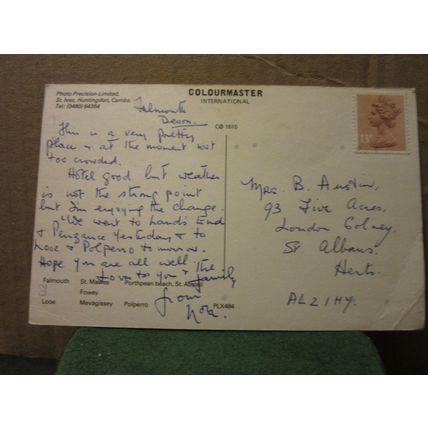 Photo Precision Limited,
St. Ives, Huntingdon, Cambs.
Tel: (0480) 64364
COLOURMASTER
INTERNATIONAL
CØ 1615
13P
Falmouth
Devon.
This is a very pretty
place & at the moment not
too crowded.
Hotel good but weather
is not the strong point
but I'm enjoying the change.
We went to Lands End
& Penzance yesterday & to
Looe & Polperro tomorrow.
Hope you are all well & the
family
Love to you
from
Nora.
Mrs. B. Austin,
93 Five Acres,
London Colney,
St. Albans.
Herts.
AL2 1HY.
Falmouth St. Mawes Porthpean beach, St. Austell
Fowey
Looe Mevagissey Polperro PLX484